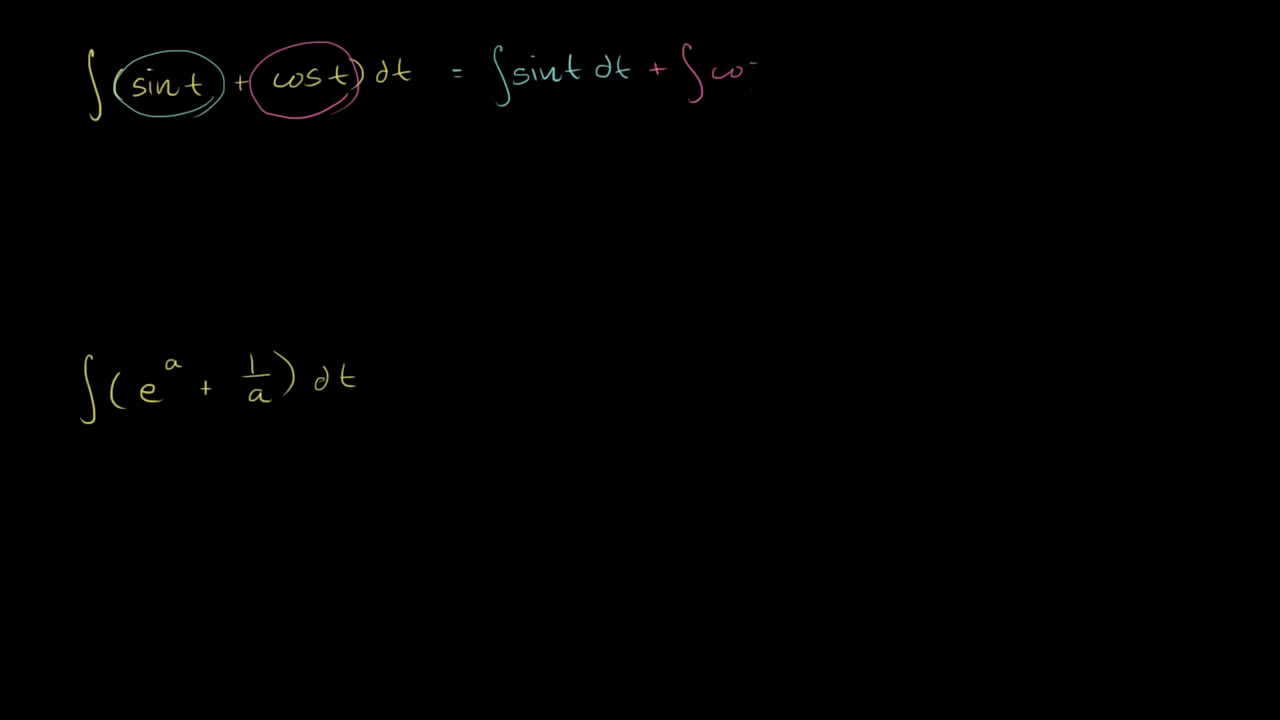 ∫(sin t + cos t) dt = ∫sin t dt + ∫co
∫(e^a + 1/a) dt